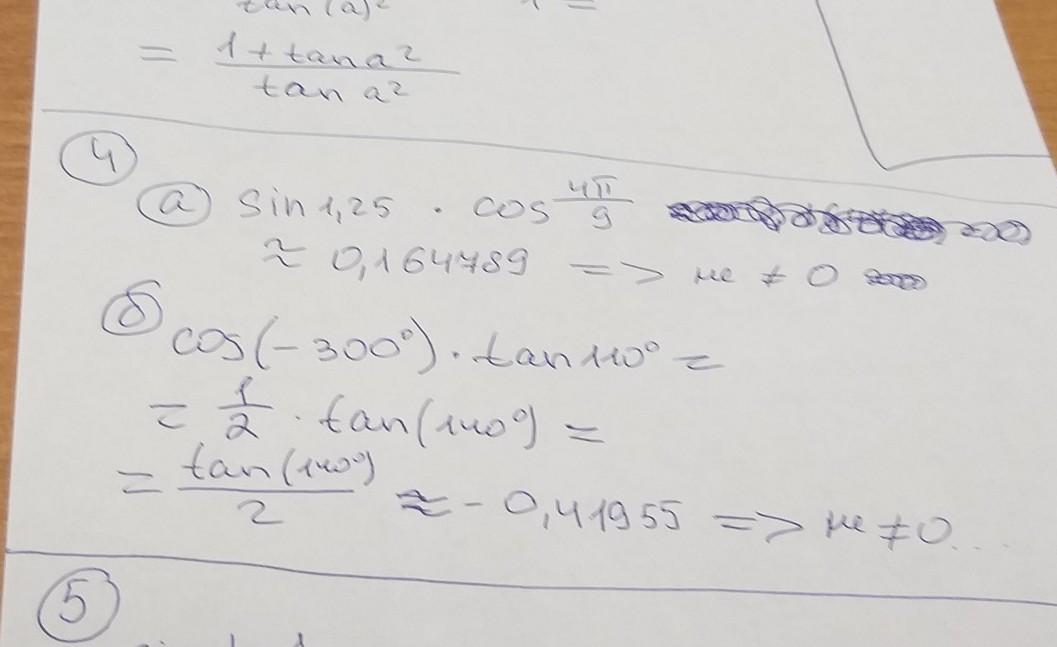 tan(a)²
= 1 + tan a² / tan a²
4
а) sin 1,25 · cos 4π/9
≈ 0,164789 => не ≠ 0
б) cos(-300°) · tan 140° =
= 1/2 · tan(140°) =
= tan(140°) / 2 ≈ - 0,41955 => не ≠ 0...
5